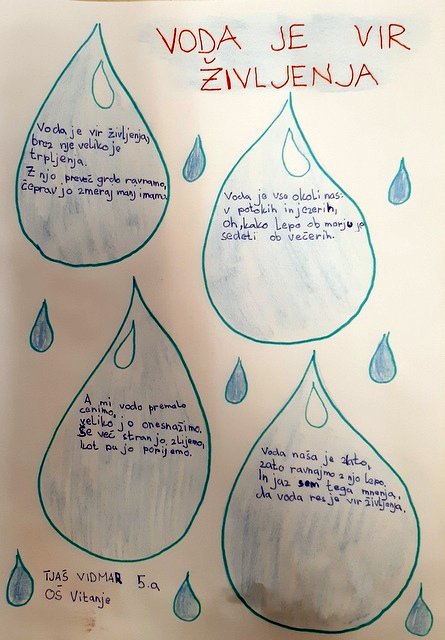 VODA JE VIR
ŽIVLJENJA
Voda je vir življenja,
brez nje veliko je
trpljenja.
Z njo preveč grdo ravnamo,
čeprav jo zmeraj manj imamo.
Voda je vse okoli nas:
v potokih in jezerih,
oh, kako lepo ob morju je
sedeti ob večerih.
A mi vodo premalo
cenimo,
veliko jo onesnažimo.
Še več stran jo zlijemo,
kot pa jo popijemo.
Voda naša je zlato,
zato ravnajmo z njo lepo.
In jaz sem tega mnenja,
da voda res je vir življenja.
TJAŠ VIDMAR 5.a
OŠ Vitanje